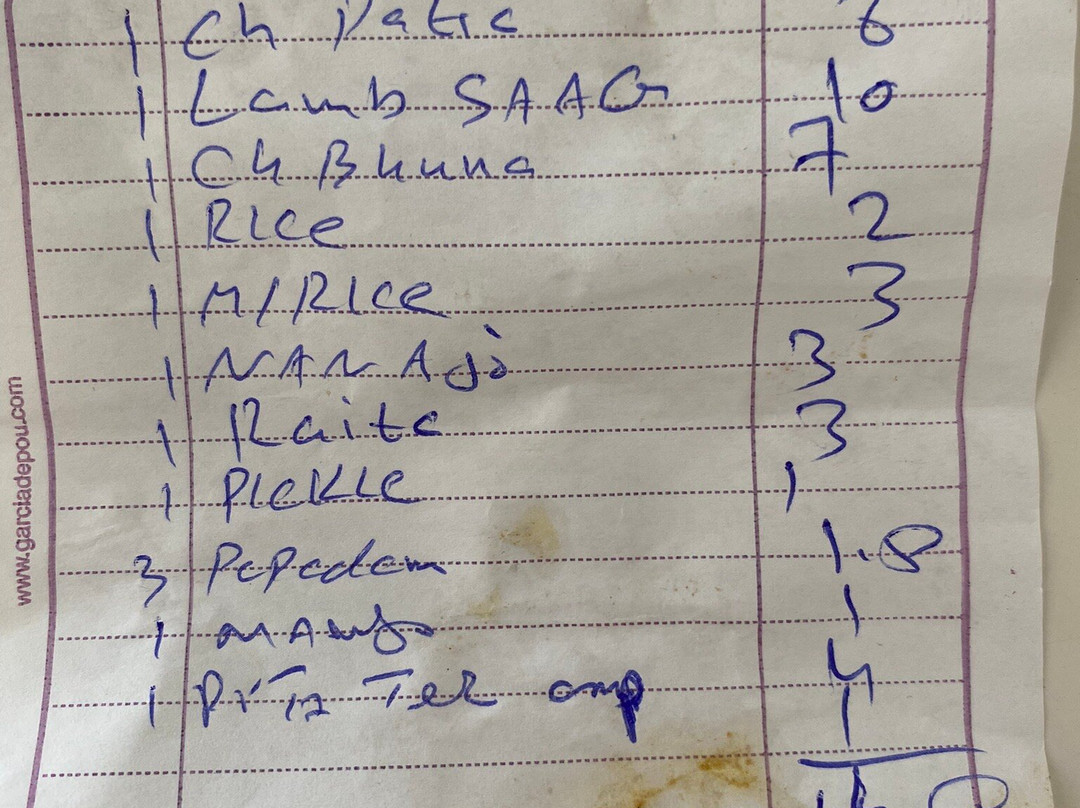 1 Ch Patia 6
1 Lamb SAAG 10
1 Ch Bhuna 7
1 Rice 2
1 M/Rice 3
1 NAN Ajo 3
1 Raita 3
1 Pickle 1
3 Papadam 1.8
1 mango 1
1 4
1
www.garciadepou.com